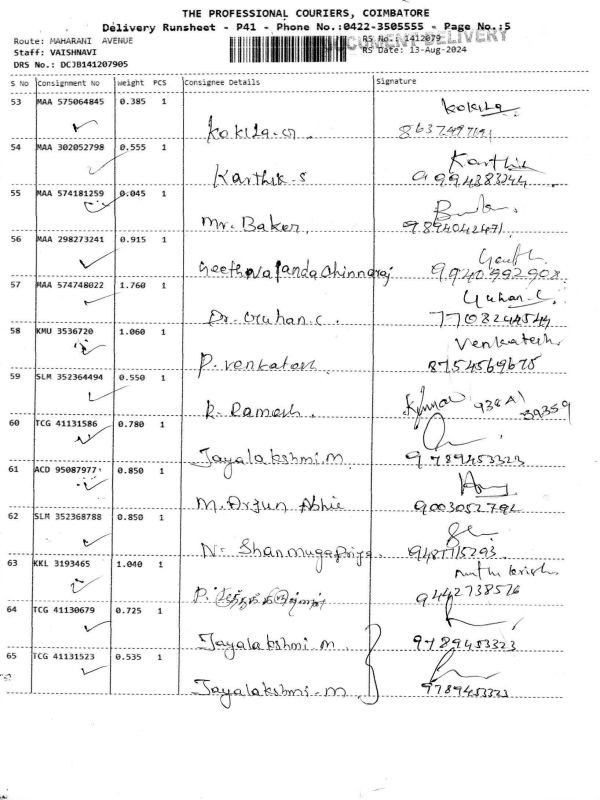 THE PROFESSIONAL COURIERS, COIMBATORE
Delivery Runsheet - P41 - Phone No.:0422-3505555 - Page No.:5
Route: MAHARANI AVENUE
RS No.: 1412079
DOCUMENT DELIVERY
Staff: VAISHNAVI
RS Date: 13-Aug-2024
DRS No.: DCJB141207905
S No Consignment No weight PCS Consignee Details Signature
53 MAA 575064845 0.385 1 Kokila
Kokila 8637297191
54 MAA 302052798 0.555 1 Karthik
Karthik.S 9994383244
55 MAA 574181259 0.045 1
Mr. Baker 9894042471
56 MAA 298273241 0.915 1
9940992908
57 MAA 574748022 1.760 1 Guhan.C
Dr. Guhan.C. 7708244544
58 KMU 3536720 1.060 1 Venkatesh
P. Venkatesh 8754569675
59 SLM 352364494 0.550 1
R. Ramesh.
60 TCG 41131586 0.780 1
Jayalakshmi.M 9789453323
61 ACD 95087977 0.850 1
M. Arjun Abhie 9003052792
62 SLM 352368788 0.850 1
N. Shanmugapriya
63 KKL 3193465 1.040 1
P. 9442738516
64 TCG 41130679 0.725 1
Jayalakshmi M. 9789453323
65 TCG 41131523 0.535 1
Jayalakshmi-M 9789453323